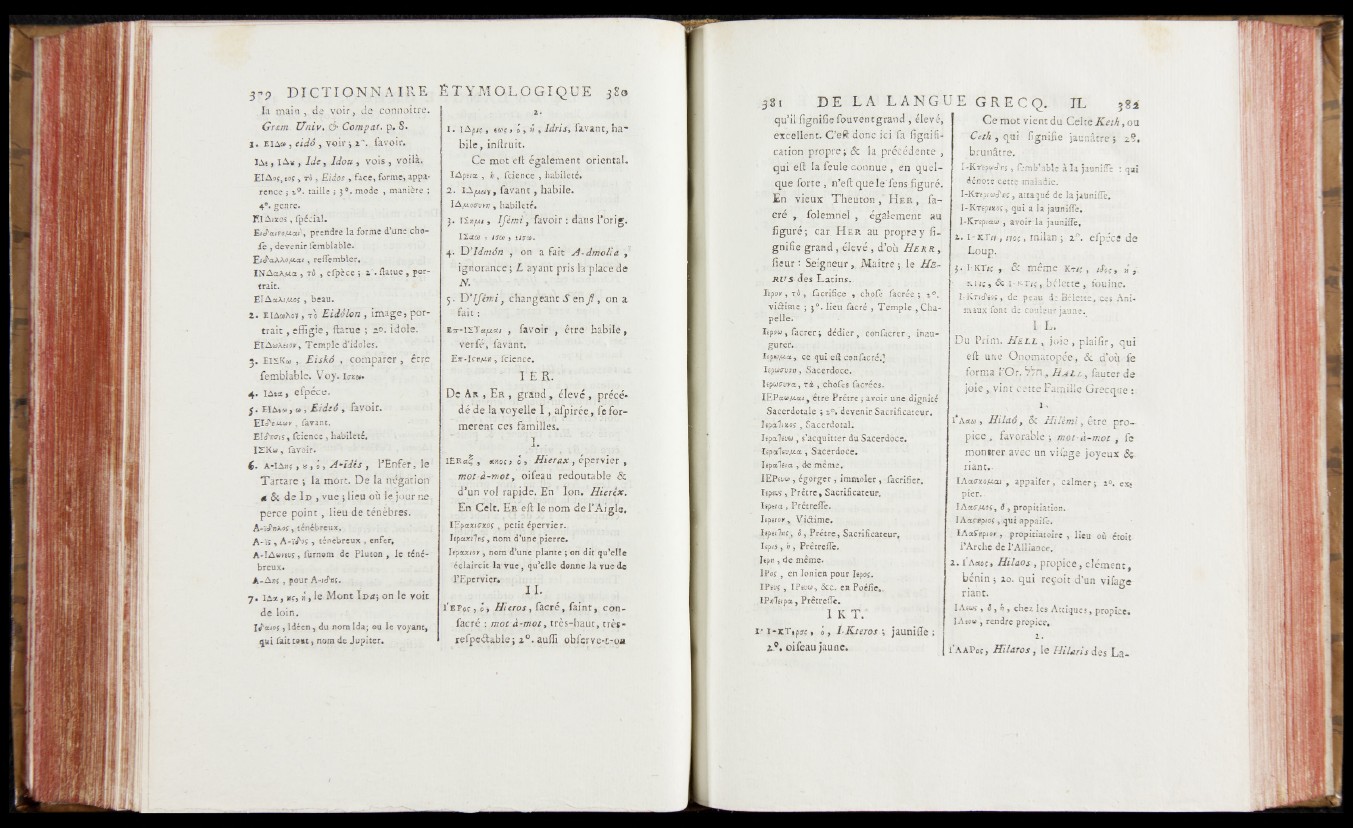 379 DICTIONNAIRE ÉTYMOLOGIQUE 380
la main, de voir, de connoître.
Gram. Univ. & Compar. p. 8.
1. ΕΙΔω, eidô, voir; 2°. ſavoir.
ΙΔε, ΙΔου, Ide, Idou, vois, voilà.
ΕΙΔος, εος, τὸ, Eidos, face, forme, appa-
rence; 2°. taille; 3°. mode, manière;
4°. genre.
ΕΙΔικος, ſpécial.
prendre la forme d'une cho-
ſe, devenir ſemblable.
Ειδαλλομαι, reſſembler.
ΙΝΔαλμα, τὸ, eſpèce; 2°. ſtatue, por-
trait.
ΕΙΔαλιμος, beau.
2. ΕΙΔωλον, τὸ Eidôlon, image, por-
trait, effigie, ſtatue; 2°. idole.
ΕΙΔωλειον, Temple d'idoles.
3. ΕΙΣΚω, Eiskô, comparer, être
ſemblable. Voy. Ισκω.
4. ΙΔεα, eſpèce.
5. ΕΙΔεω, ω, Eideô, ſavoir.
ſavant.
ΕΙδησις, ſcience, habileté.
ΙΣΚω, ſavoir.
6. Α-ΙΔης, ου, ὁ, A-ïdês, l'Enfer, le
Tartare; la mort. De la négation
a & de ID, vue; lieu où le jour ne
perce point, lieu de ténèbres.
Α-ϊδηλος, ténébreux.
Α-ϊς, Α-ϊδος, ténébreux, enfer.
Α-ΙΔωνευς, ſurnom de Pluton, le téné-
breux.
Α-Δης, pour Α-ιδης.
7. ΙΔα, ης, ἡ, le Mont IDA; on le voit
de loin.
Ιδαιος, Idéen, du nom Ida; ou le voyant,
qui fait tout, nom de Jupiter.
2.
1. ΙΔρις, εως, ὁ, ἡ, Idris, ſavant, ha-
bile, inſtruit.
Ce mot eſt également oriental.
ΙΔρεια, ἡ, ſcience, habileté.
2. ΙΔμων, ſavant, habile.
ΙΔμοσυνη, habileté.
3. ΙΣημι, Iſémi, ſavoir: dans l'orig.
4. D'Idmôn, on a fait A-dmolia,
ignorance; L ayant pris la place de
N.
5. D'Iſémi, changeant S en ſt, on a
fait:
Επ-ΙΣΤαμαι, ſavoir, être habile,
verſé, ſavant.
Επ-Ιστημη, ſcience.
IER.
De AR, ER, grand, élevé, précé-
dé de la voyelle I, aſpirée, ſe for-
merent ces familles.
I.
ΙΕΡαξ, ακος, ὁ, Hierax, épervier,
mot à-mot, oiſeau redoutable &
d'un vol rapide. En Ion. Hieréx.
En Celt. ER eſt le nom de l'Aigle.
ΙΕρακισκος, petit épervier.
Ιερακιτης, nom d'une pierre.
Ιερακιον, nom d'une plante; on dit qu'elle
éclaircit la vue, qu'elle donne la vue de
l'Epervier.
II.
ΙΕΡος, ὁ, Hieros, ſacré, ſaint, con-
ſacré: mot à-mot, très-haut, très-
reſpectable; 2°. auſſi obſerve-t-on
381 DE LA LANGUE GRECQ. IL 382
qu'il ſignifie ſouvent grand, élevé,
excellent. C'eſt donc ici ſa ſignifi-
cation propre; & la précédente,
qui eſt la ſeule connue, en quel-
que ſorte, n'eſt que le ſens figuré.
En vieux Theuton, HER, ſa-
cré, ſolemnel, également au
figuré; car HER au propre y ſi-
gnifie grand, élevé, d'où HERR,
ſieur: Seigneur, Maître; le HE-
RUS des Latins.
Ιερον, τὸ, ſacrifice, choſe ſacrée; 2°.
victime; 3°. lieu ſacré, Temple, Cha-
pelle.
Ιεροω, ſacrer; dédier, conſacrer, inau-
gurer.
Ιερωμα, ce qui eſt conſacré.
Ιερωσυνη, Sacerdoce.
Ιερωσυνα, τὰ, choſes ſacrées.
ΙΕΡαωμαι, être Prêtre; avoir une dignité
Sacerdotale; 2°. devenir Sacrificateur.
Ιερατικος, Sacerdotal.
Ιερατευω, s'acquitter du Sacerdoce.
Ιερατευμα, Sacerdoce.
Ιερατεια, de même.
ΙΕΡευω, égorger, immoler, ſacrifier.
Ιερευς, Prêtre, Sacrificateur.
Ιερεια, Prêtreſſe.
Ιερειον, Victime.
ὁ, Prêtre, Sacrificateur,
Ιερις, ἡ, Prêtreſſe.
Ιερη, de même.
ΙΡος, en Ionien pour Ιερος.
ΙΡευς, ΙΡευω, &c. en Poéſie.
Prêtreſſe.
IKT.
1° Ι-ΚΤερος, ὁ, I-Kteros; jauniſſe;
2°. oiſeau jaune.
Ce mot vient du Celte Keth, ou
Ceth, qui ſignifie jaunâtre; 2°.
brunâtre.
Ι-Κτερωδης, ſemblable à la jauniſſe: qui
dénote cette maladie.
attaqué de la jauniſſe.
Ι-Κτερικος, qui a la jauniſſe.
Ι-Κτεριαω, avoir la jauniſſe.
2. Ι-ΚΤιν, ινος, milan; 2°. eſpèce de
Loup.
3. Ι-ΚΤις, & même Κτις, ιδος, ἡ,
bélette, fouine.
Ι-Κτιδεος, de peau de Bélette, ces Ani-
maux ſont de couleur jaune.
IL.
Du Prim. HELL, joie, plaiſir, qui
eſt une Onomatopée, & d'où ſe
forma l'Or. הלל, HALL, ſauter de
joie, vint cette Famille Grecque:
1.
1°Λαω, Hilaô, & Hilêmi, être pro-
pice, favorable; mot-à-mot, ſe
montrer avec un viſage joyeux &
riant.
ΙΛασκομαι, appaiſer, calmer; 2°. ex-
pier.
ΙΛασμος, ὁ, propitiation.
ΙΛαστηριος, qui appaiſe.
ΙΛαστηριον, propitiatoire, lieu où étoit
l'Arche de l'Alliance.
2. ΙΛαος, Hilaos, propice, clément,
bénin; 2o. qui reçoit d'un viſage
riant.
ΙΛεως, ὁ, ἡ, chez les Attiques, propice.
ΙΛεοω, rendre propice.
2.
ΙΛΑΡος, Hilaros, le Hilaris des La-